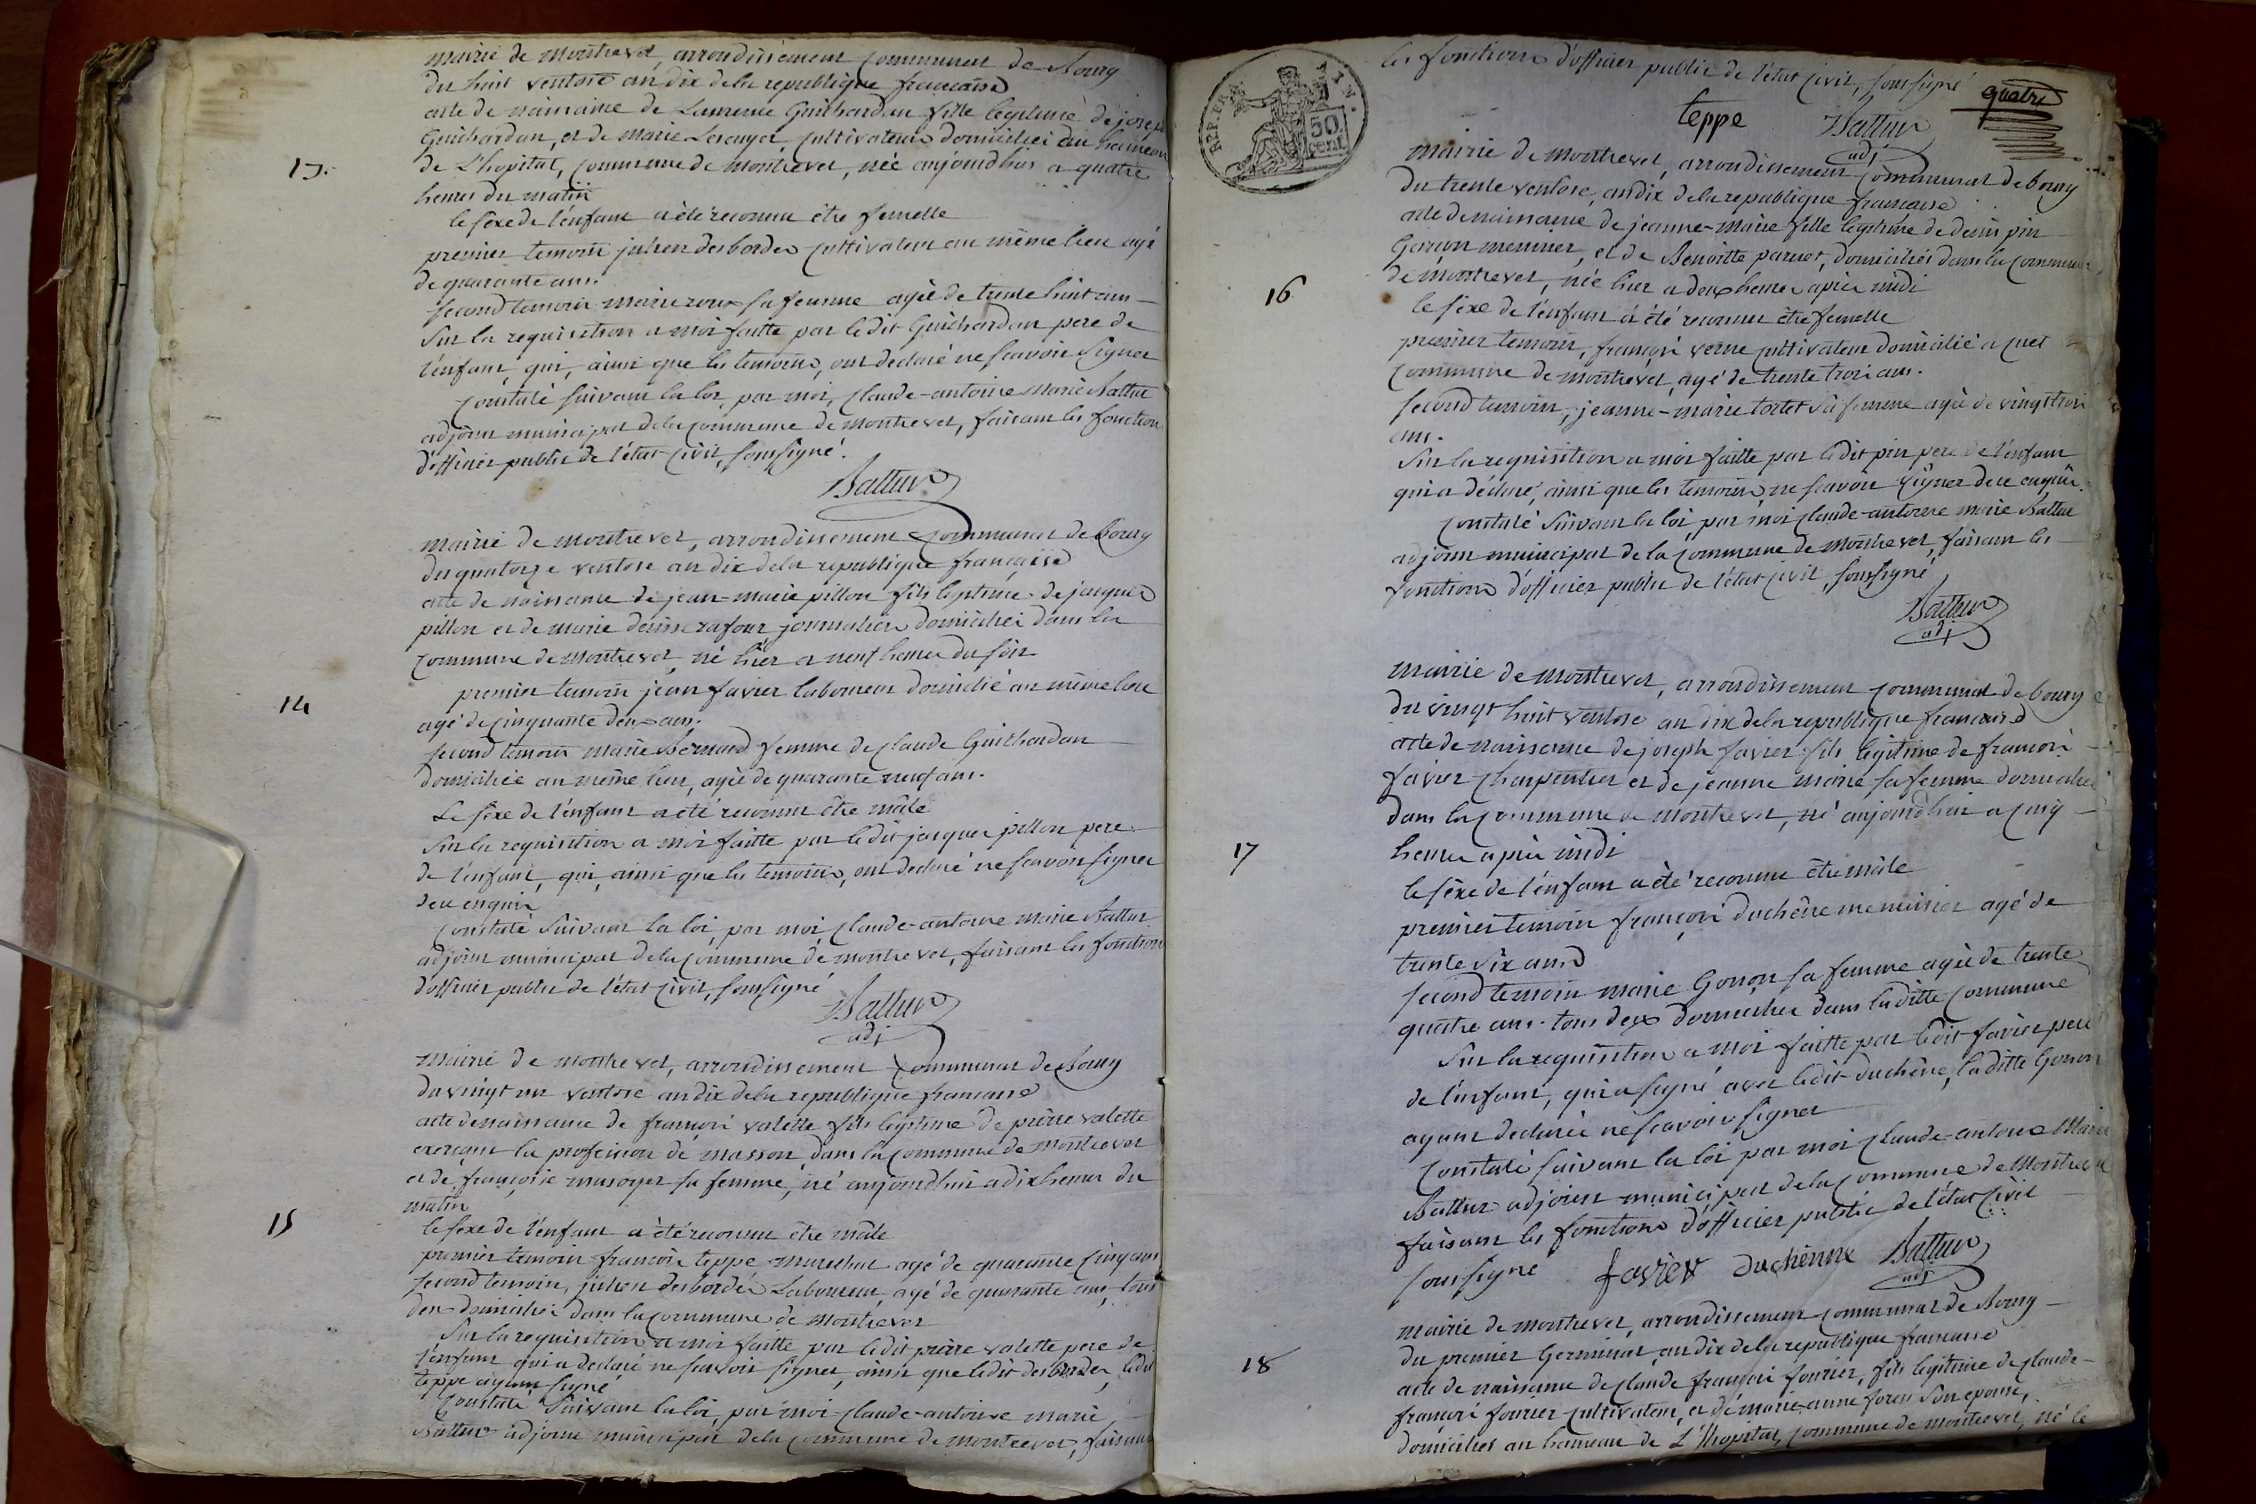 mairie de montrevel, arrondissement communal de Bourg
du huit ventose an dix de la republique francaise
acte de naissance de Laurence Guichardan fille legitime de joseph
Guichardan, et de marie cultivateurs domiciliés au hameau
13.
de L'hopital, commune de montrevel, née aujourdhui a quatre
heures du matin
le sexe de l'enfant a été reconnu être femelle
premier temoin julien desbordes cultivateur au même lieu agé
de quarante ans.
second temoin marie roux sa femme agée de trente huit ans
Sur la requisition a moi faitte par ledit Guichardan pere de
l'enfant, qui, ainsi que les temoins, ont declaré ne scavoir signer
constaté suivant la loi, par moi, claude-antoine Marie Battur
adjoint municipal de la commune de montrevel, faisant les fonctions
d'officier public de l'état civil, soussigné.
Battur
mairie de montrevel, arrondissement communal de bourg
du quatorze ventose an dix de la republique française
acte de naissance de jean-marie pillon fils legitime de jacques
pillon et de marie denise rafour journaliers domiciliés dans la
commune de montrevel, né hier a neuf heures du soir
14
premier temoin jean favier laboureur domicilié au même lieu
agé de cinquante deux ans.
second temoin marie Bernard femme de claude Guichardan
domiciliée au même lieu, agée de quarante neuf ans.
Le sexe de l'enfant a été reconnu être mâle
Sur la requisition a moi faitte par ledit jacques pillon pere
de l'enfant, qui, ainsi que les temoins, ont declaré ne scavoir signer
de ce enquis
constaté suivant la loi, par moi claude-antoine marie Battur
adjoint municipal de la commune de montrevel, faisant les fonctions
d'officier public de l'état civil, soussigné
Battur
adj
mairie de montrevel, arrondissement communal de Bourg
du vingt un ventose an dix de la republique francaise
acte de naissance de françois valette fils legitime de pierre valette
exerçant la profession de masson, dans la commune de Montrevel
et de françoise musoyer sa femme, né aujourdhui a dix heures du
matin
15
le sexe de l'enfant a été reconnu être mâle
premier temoin francois teppe marechal agé de quarante cinq ans
second temoin, julien desbordes Laboureur, agé de quarante ans, tous
deux domiciliés dans la commune de montrevel
Sur la requisition a moi faitte par ledit pierre valette pere de
l'enfant qui a declaré ne scavoir signer, ainsi que ledit desbordes, ledit
teppe ayant signé
constaté suivant la loi, par moi claude-antoine marie
Battur adjoint municipal de la commune de montrevel, faisant
REP. FRA.
50
cent.
les fonctions d'officier public de l'état civil, soussigné
quatre
teppe Battur
adj
mairie de montrevel, arrondissement communal de bourg
du trente ventose, an dix de la republique francaise
acte de naissance de jeanne-marie fille legitime de denis pin
Garçon meunier, et de Benoitte parnet, domiciliés dans la commune
de montrevel, née hier a deux heures après midi
16
le sexe de l'enfant a été reconnu être femelle
premier temoin, françois verne cultivateur domicilié a cuet
commune de montrevel, agé de trente trois ans.
second temoin, jeanne-marie tortet sa femme agée de vingt trois
ans.
Sur la requisition a moi faitte par ledit pin pere de l'enfant
qui a declaré, ainsi que les temoins, ne scavoir signer de ce enquis.
constaté suivant la loi, par moi claude-antoine marie Battur
adjoint municipal de la commune de montrevel, faisant les
fonctions d'officier public de l'état civil, soussigné
Battur
adj
mairie de montrevel, arrondissement communal de bourg
du vingt huit ventose an dix de la republique francaise
acte de naissance de joseph favier fils legitime de francois
favier charpentier et de jeanne marie sa femme domiciliés
dans la commune de montrevel, né aujourdhui a cinq
17
heures après midi
le sexe de l'enfant a été reconnu être mâle
premier temoin françois duchêne menuisier agé de
trente six ans
second temoin marie Gonon sa femme agée de trente
quatre ans. tous deux domiciliés dans laditte commune
Sur la requisition a moi faitte par ledit favier pere
de l'enfant, qui a signé avec ledit duchêne, laditte Gonon
ayant declarée ne scavoir signer
constaté suivant la loi par moi claude-antoine Marie
Battur adjoint municipal de la commune de Montrevel
faisant les fonctions d'officier public de l'état civil
soussigné favier Duchenne Battur
adj
mairie de montrevel, arrondissement communal de Bourg
du premier Germinal, an dix de la republique francaise
18
acte de naissance de claude françois fourier, fils legitime de claude-
françois fourier cultivateur, et de marie-anne son epouse,
domiciliés au hameau de L'hopital, commune de montrevel, né le